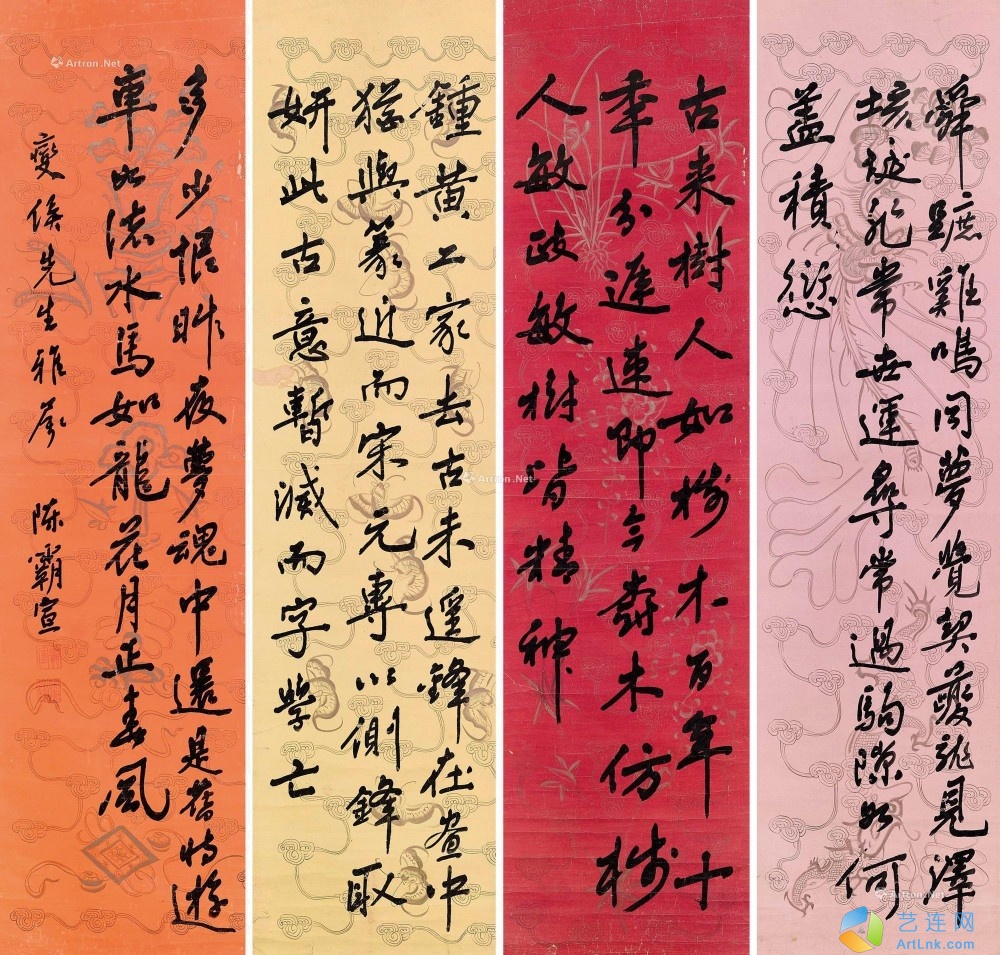 舜蹠雞鳴同夢覺契見澤
垓埏永常世運尋常過駒隙如何
盖積愆
古来樹人如树木百年十
季分遲速即今木仿树
人敏政敏樹皆精神
鍾黄二家去古未遥鋒在畫中
猶與篆近而宋元專以側鋒取
妍此古意暫滅而字學亡
多少恨昨夜夢魂中還是舊時遊
車如流水馬如龍花月正春風
燮侯先生雅 陈霸宣
Artron.Net
Artron.Net
艺连网
ArtLnk.com